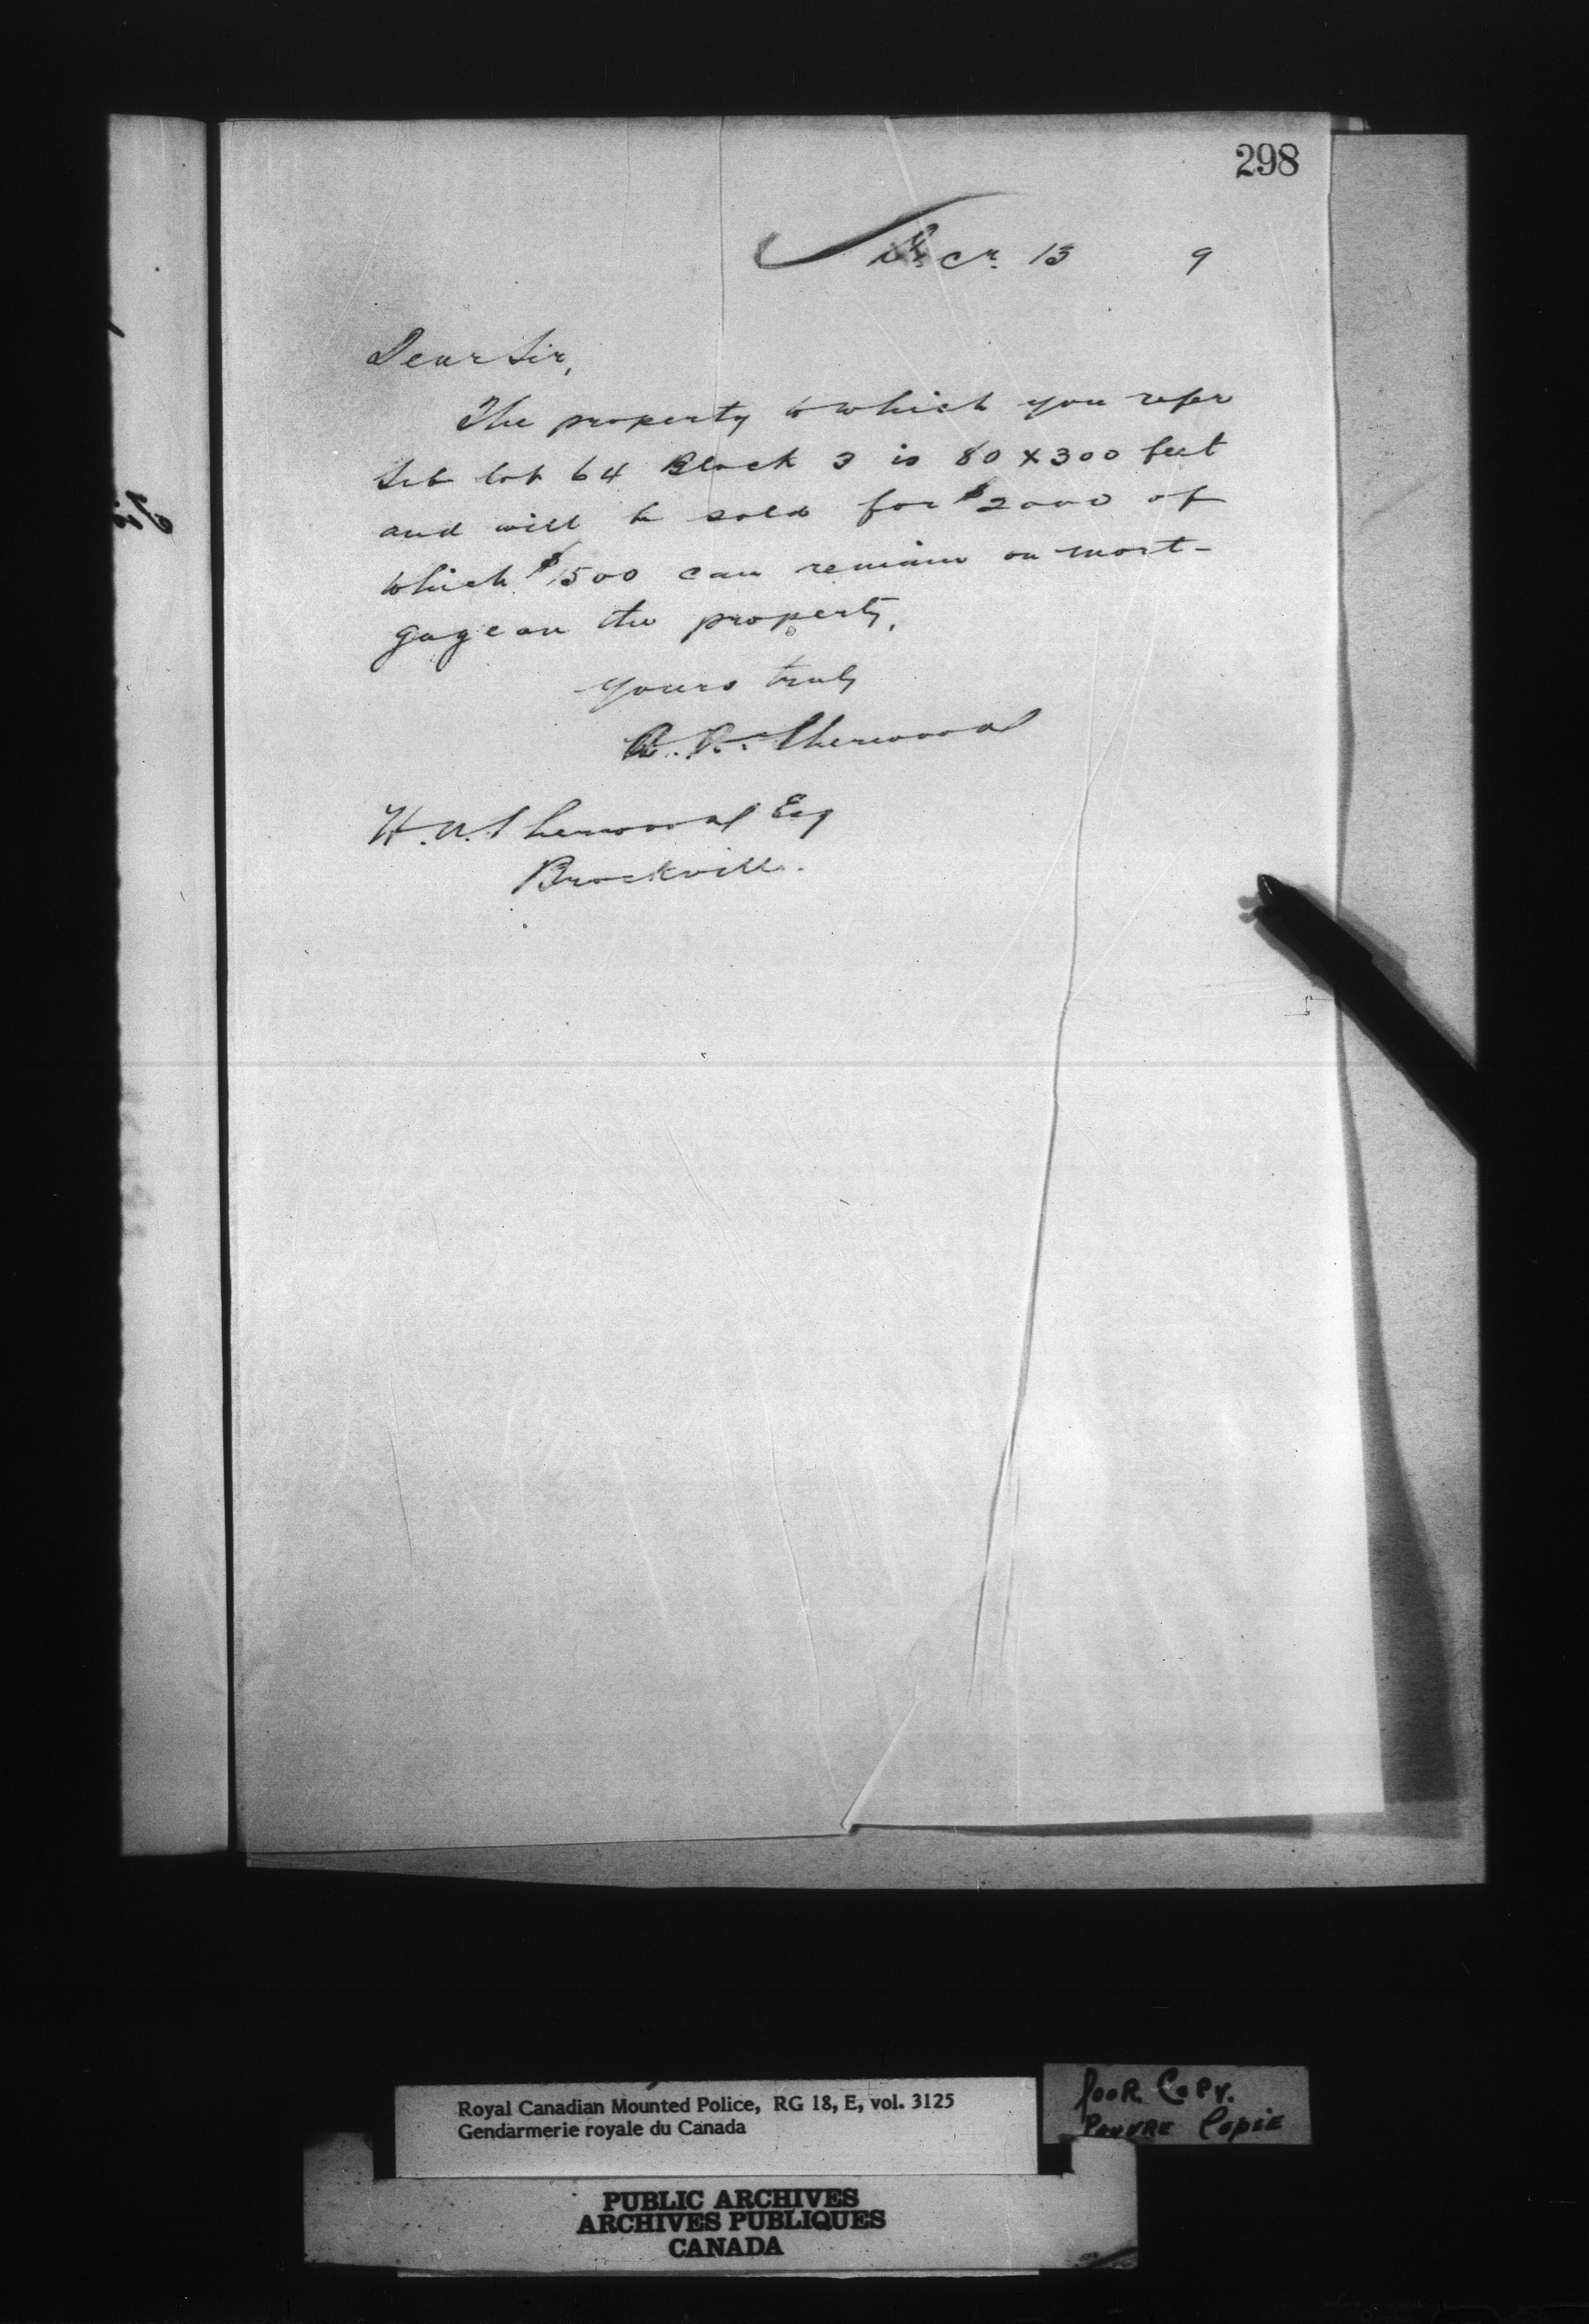 298
Decr. 13 9
Dear Sir,
The property to which you refer
Sub lot 64 Block 3 is 80 x 300 feet
and will be sold for $2000 of
which $1500 can remain on mort-
gage on the property.
Yours truly
A. P. Sherwood
H. A. Sherwood Esq
Brockville.
Royal Canadian Mounted Police, RG 18, E, vol. 3125
Gendarmerie royale du Canada
Poor Copy.
Pauvre Copie
PUBLIC ARCHIVES
ARCHIVES PUBLIQUES
CANADA